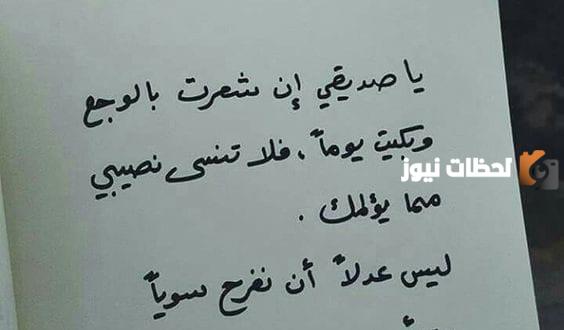 يا صديقي إن شعرت بالوجع
وبكيت يوماً، فلا تنسى نصيبي
مما يؤلمك.
ليس عدلاً أن نفرح سوياً
لحظات نيوز